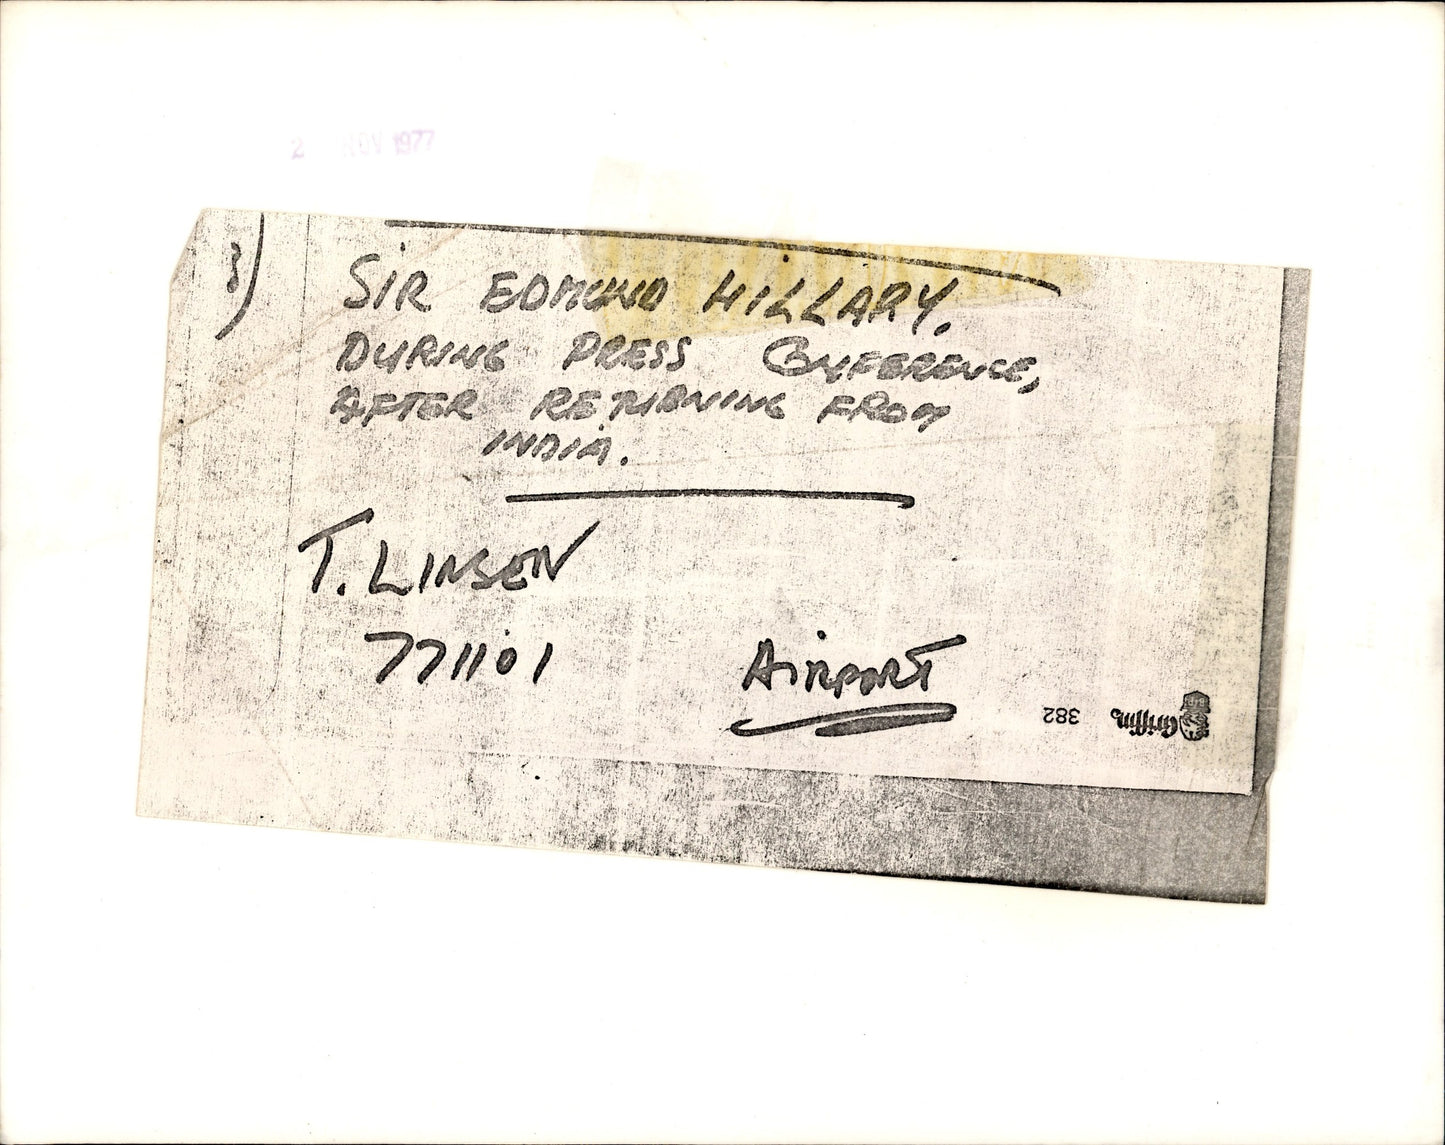 2 NOV 1977
3)
SIR EDMUND HILLARY.
DURING PRESS CONFERENCE,
AFTER RETURNING FROM
INDIA.
T. LINSEN
771101
AIRPORT
382 Griffin